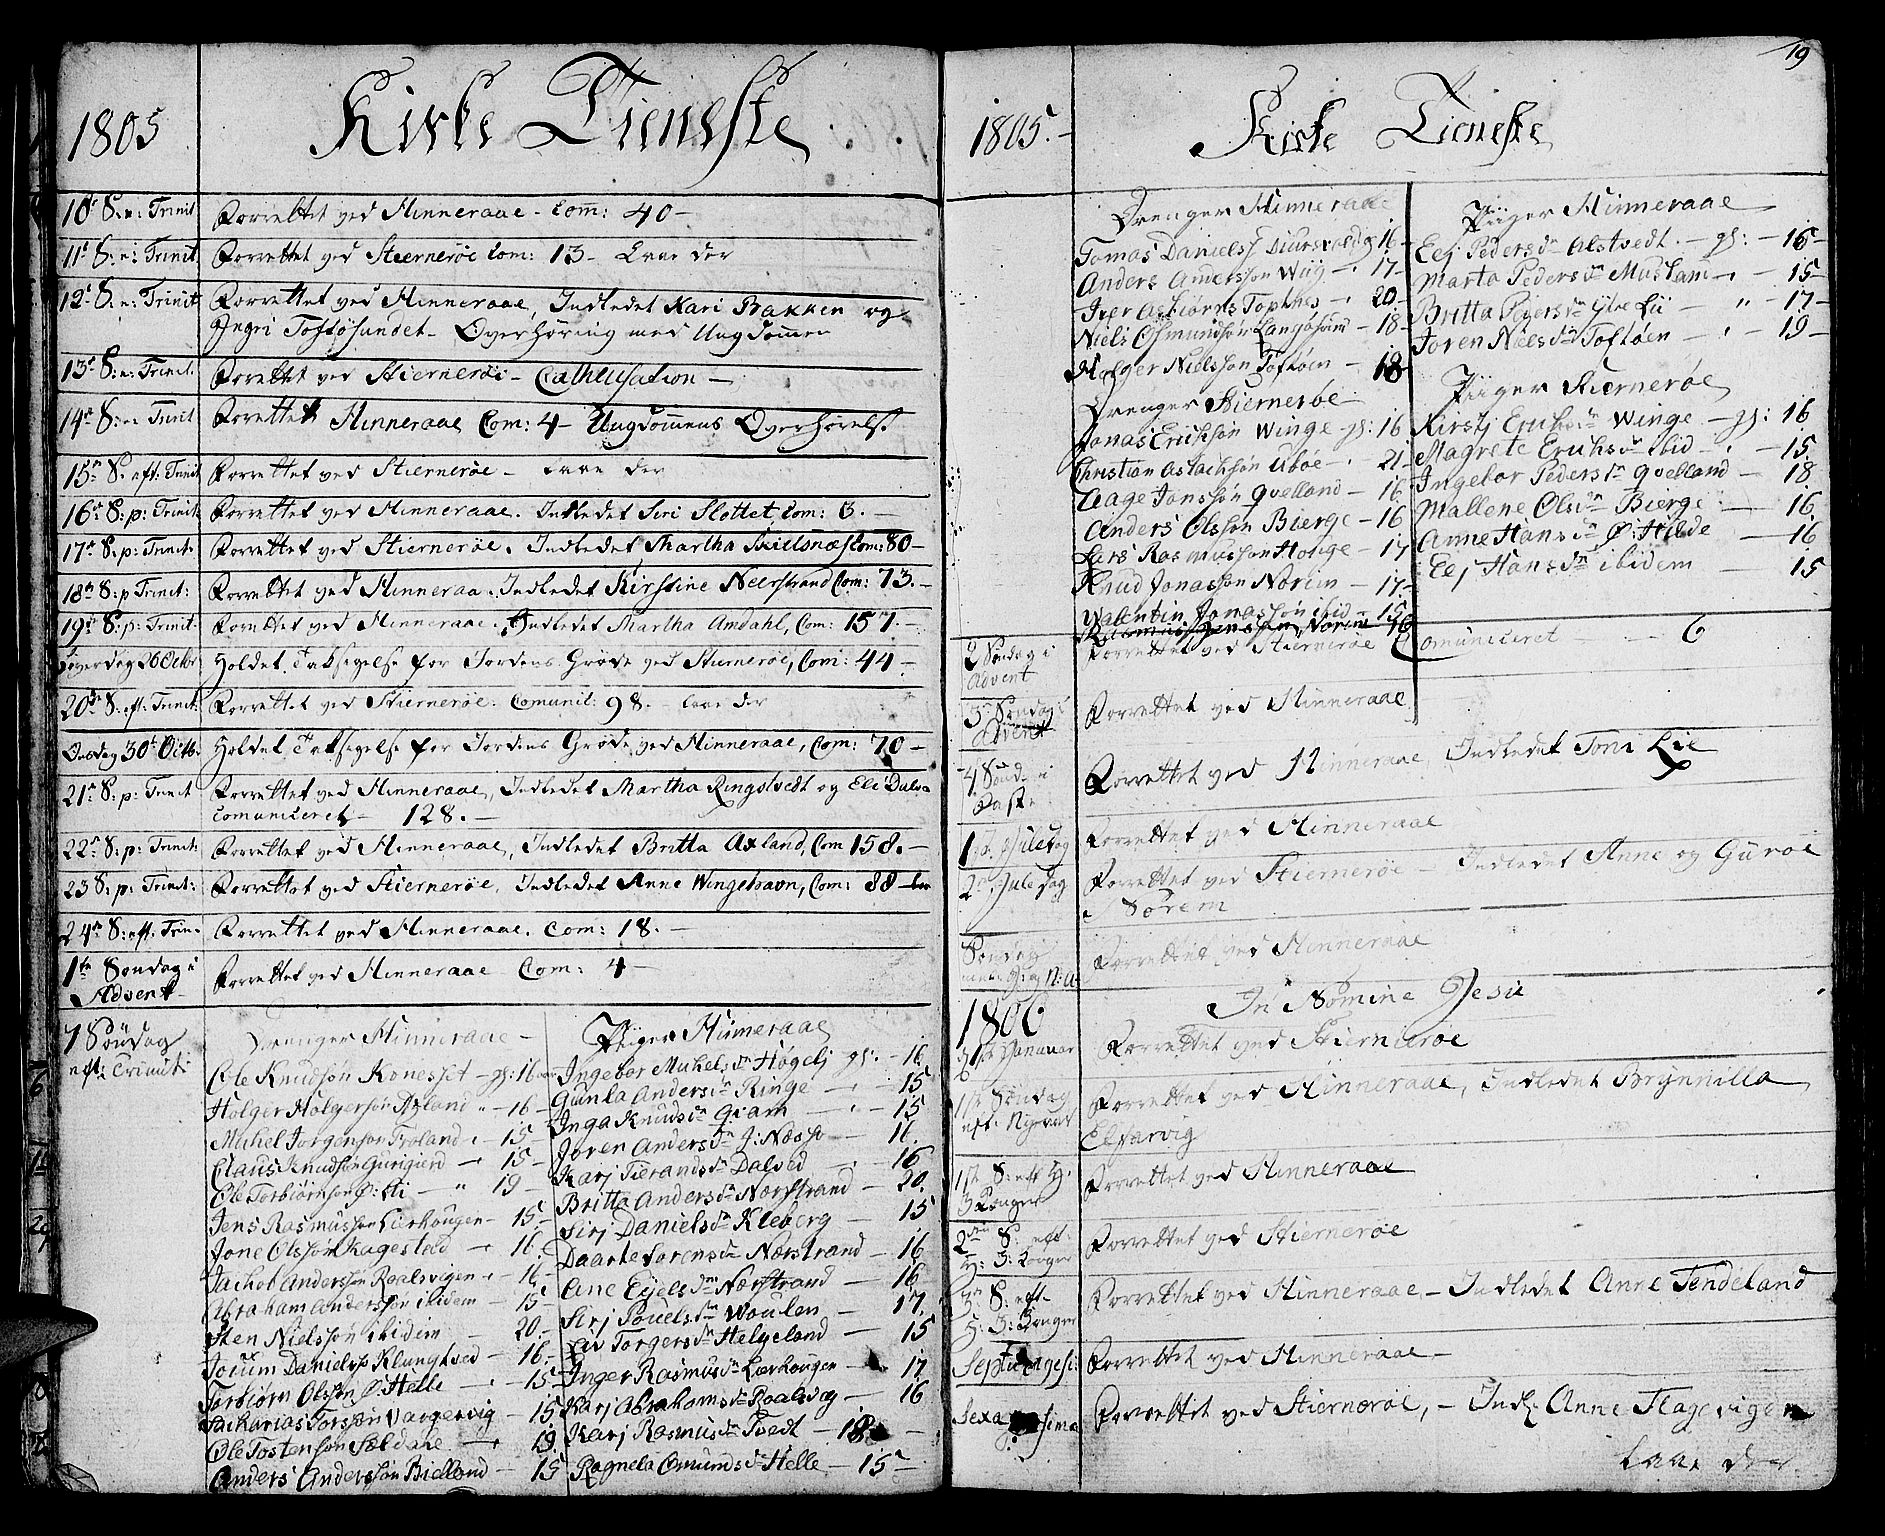 1805
Kirke Tieneste
10de S: e: Trinit Forrettet ved Hinneraae - Com: 40 -
11te S: e: Trinit Forrettet ved Stiernerøe Com: 13 - Laae der
12te S: e: Trinit Forrettet ved Hinneraae, Indledet Kari Bakken og
Ingri Toftøsundet - Overhøring med Ungdommen
13de S: e: Trinit. Forrettet ved Stiernerøe - Cathechisation -
14de S: e: Trinit Forrettet Hinneraae Com: 4 - Ungdommens Overhørelse
15de S. eft: Trinit Forrettet ved Stiernerøe - laae der
16de S: p: Trinit Forrettet ved Hinneraae. Indledet Siri Slottet, Com: 3. -
17de S: p: Trinit: Forrettet ved Stiernerøe. Indledet Martha Skielsnæs Com: 80 -
18de S: p Trinit: Forrettet ved Hinneraae. Indledet Kirstine Neerstrand Com: 73. -
19de S: p: Trinit: Forrettet ved Hinneraae. Indledet Martha Amdahl, Com: 157. -
Løverdag 26 Octbr: Holdet Taksigelse for Jordens Grøde ved Stiernerøe, Com: 44 -
20de S: eft: Trinit: Forrettet ved Stiernerøe. Comunic: 98. - laae der
Onsdag 30te Octb: Holdet Taksigelse for Jordens Grøde, ved Hinneraae, Com: 70 -
21de S: p: Trinit Forrettet ved Hinneraae, Indledet Martha Ringstvedt og Eli Dalva
Comuniceret - 128. -
22de S: p: Trinit: Forrettet ved Hinneraae, Indledet Britta Axland, Com 158. -
23 S: p: Trinit: Forrettet ved Stiernerøe, Indledet Anne Wingehavn, Com: 88 -
24de S: eft: Trin: Forrettet ved Hinneraae. Com: 18. -
1te Søndag i Advent Forrettet ved Hinneraae - Com: 4 -
7 Søndag
eft: Triniti
Drenger Hinneraae -
Ole Knudsøn Konesset - gl: 16 aar
Holger Holgersøn Axland " - 16 -
Mickel Jørgensøn Froland - 15 -
Claus Knudsøn Gurigierd - 15 -
Ole Torbiørnsøn Ø: - " 19 -
Jens Rasmussøn Lierhougen - 15 -
Jone Olssøn Kagestad - 16 -
Jachob Anderssøn Roalsvigen - 16 -
Abraham Anderssøn ibidem - 15 -
Sten Nielssøn ibidem - 20 -
Joeum Danielssø Klungtved - 16 -
Torbiørn Olssøn Ø: Helle - 15 -
Zacharias Torssøn Vargervig - 15
Ole Tostensøn Sældale - 19
Anders Anderssøn Bielland - 15
Piiger Hinneraae
Ingebor Mickelsdn Høgelj gl: - 16
Gunla Andersdn Ringe - 15
Inga Knudsdn Gram - 15
Joren Andersdn J: Næsse - 16
Karj Tierandsdn Dalved - 16
Britta Andersdn Nærstrand - 20
Sirj Danielsdn Kleberg - 15
Daarte Sørensdn Nærstrand - 16
Ane Ejelsdn Nærstrand - 16
Sirj Pouelsdn Woulen - 17
Liv Torgersdn Helgeland - 15
Inger Rasmusdn Lærhougen - 17
Karj Abrahamsdn Roalsvig - 16
Karj Rasmusdn Tvedt - 18 -
Ragnela Omundsdn Helle - 15 -
19
1805. -
Kirke Tieneste
Drenger Hinneraae
Tomas Daniels Diursvold gl 16 -
Anders Anderssøn Wiig - 17 -
Iver Asbiørns - 20 -
Niels Osmundsøn - 18 -
Holger Nielssøn Toftøen - 18
Drenger Stiernerøe
Jonas Erichsøn Winge gl: 16
Christian Aslachsøn Aboe - 21 -
Aage Jonssøn Qvelland - 16
Anders Olssøn Bierge - 16
Lars Rasmussøn Houge - 17
Knud Jonassøn Norem - 17 -
Walentin Jonassøn ibid - 15
Rasmus Jenssøn Norem - 16
Piiger Hinneraae
Eej Pedersdn Alstvedt - gl: - 16 -
Marta Pedersdn Musland - 15
Britta Peders dn Ytre Lii - " - 17 -
Joren Nielsdn Toftøen - 19 -
Piiger Stiernerøe
Kirstj Erichsdn Winge - gl: 16
Magrete Erichsdn ibid - 15
Ingebor Pedersdn Qvelland - 18
Mallene Olsdn Bierge - 16
Anne Hansdn Ø: Hilde - 16
Eej Hansdn ibidem - 15
2 Søndag i
Advent
Forrettet ved Stiernerøe Comuniceret - 6
3de Søndag i
Advent
Forrettet ved Hinneraae
4 Sønd: i
Forrettet ved Hinneraae, Indledet Toni Lie
1ste Juledag Forrettet ved Hinneraae
2de Juledag Forrettet ved Stiernerøe - Indledet Anne og Guroe
Norem
Søndag
Forrettet ved Hinneraae
1806
In Nomine Jesu
1ste Januar Forrettet ved Stiernerøe
1ste Søndag
eft: Nyeaar
Forrettet ved Hinneraae, Indledet Brynnilla
Elfarvig
1ste S: eft H:
3 Konger
Forrettet ved Hinneraae
2den S: eft:
H: 3: Konger
Forrettet ved Stiernerøe
3de S: eft
H: 3: Konger
Forrettet ved Hinneraae - Indledet Anne Tendeland
Septuagesi: Forrettet ved Hinneraae -
Sexagesima Forrettet ved Stiernerøe, - Indl: Anne Hagevigen
Laae der